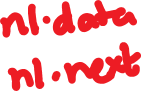 nl.data
nl.next